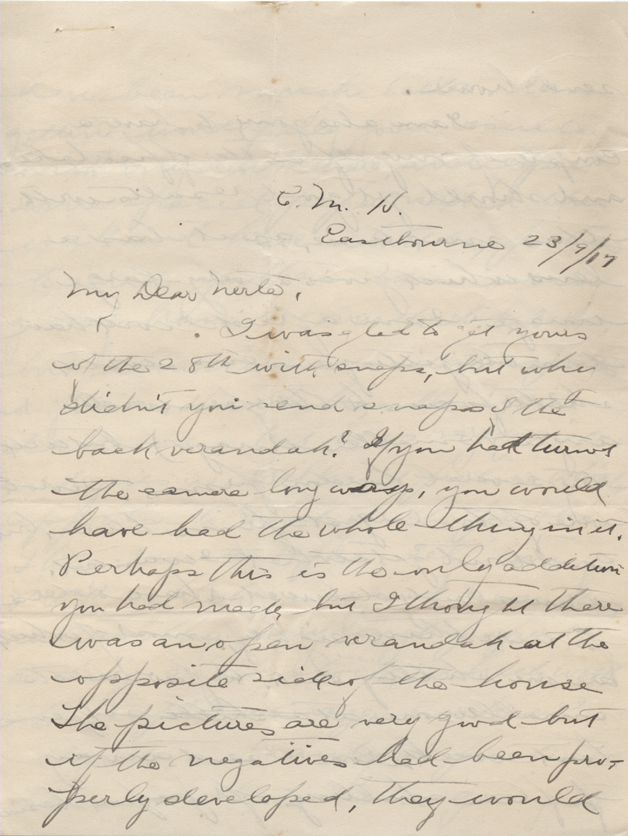 C. M. H.
Eastbourne 23/9/17
My Dear Nerta,
I was glad to get yours
of the 28th with snaps, but why
didn't you send snaps of the
back verandah? If you had turned
the camera long ways, you would
have had the whole thing in it.
Perhaps this is the only addition
you had made, but I thought there
was an open verandah at the
opposite side of the house
The pictures are very good but
if the negatives had been pro-
perly developed, they would